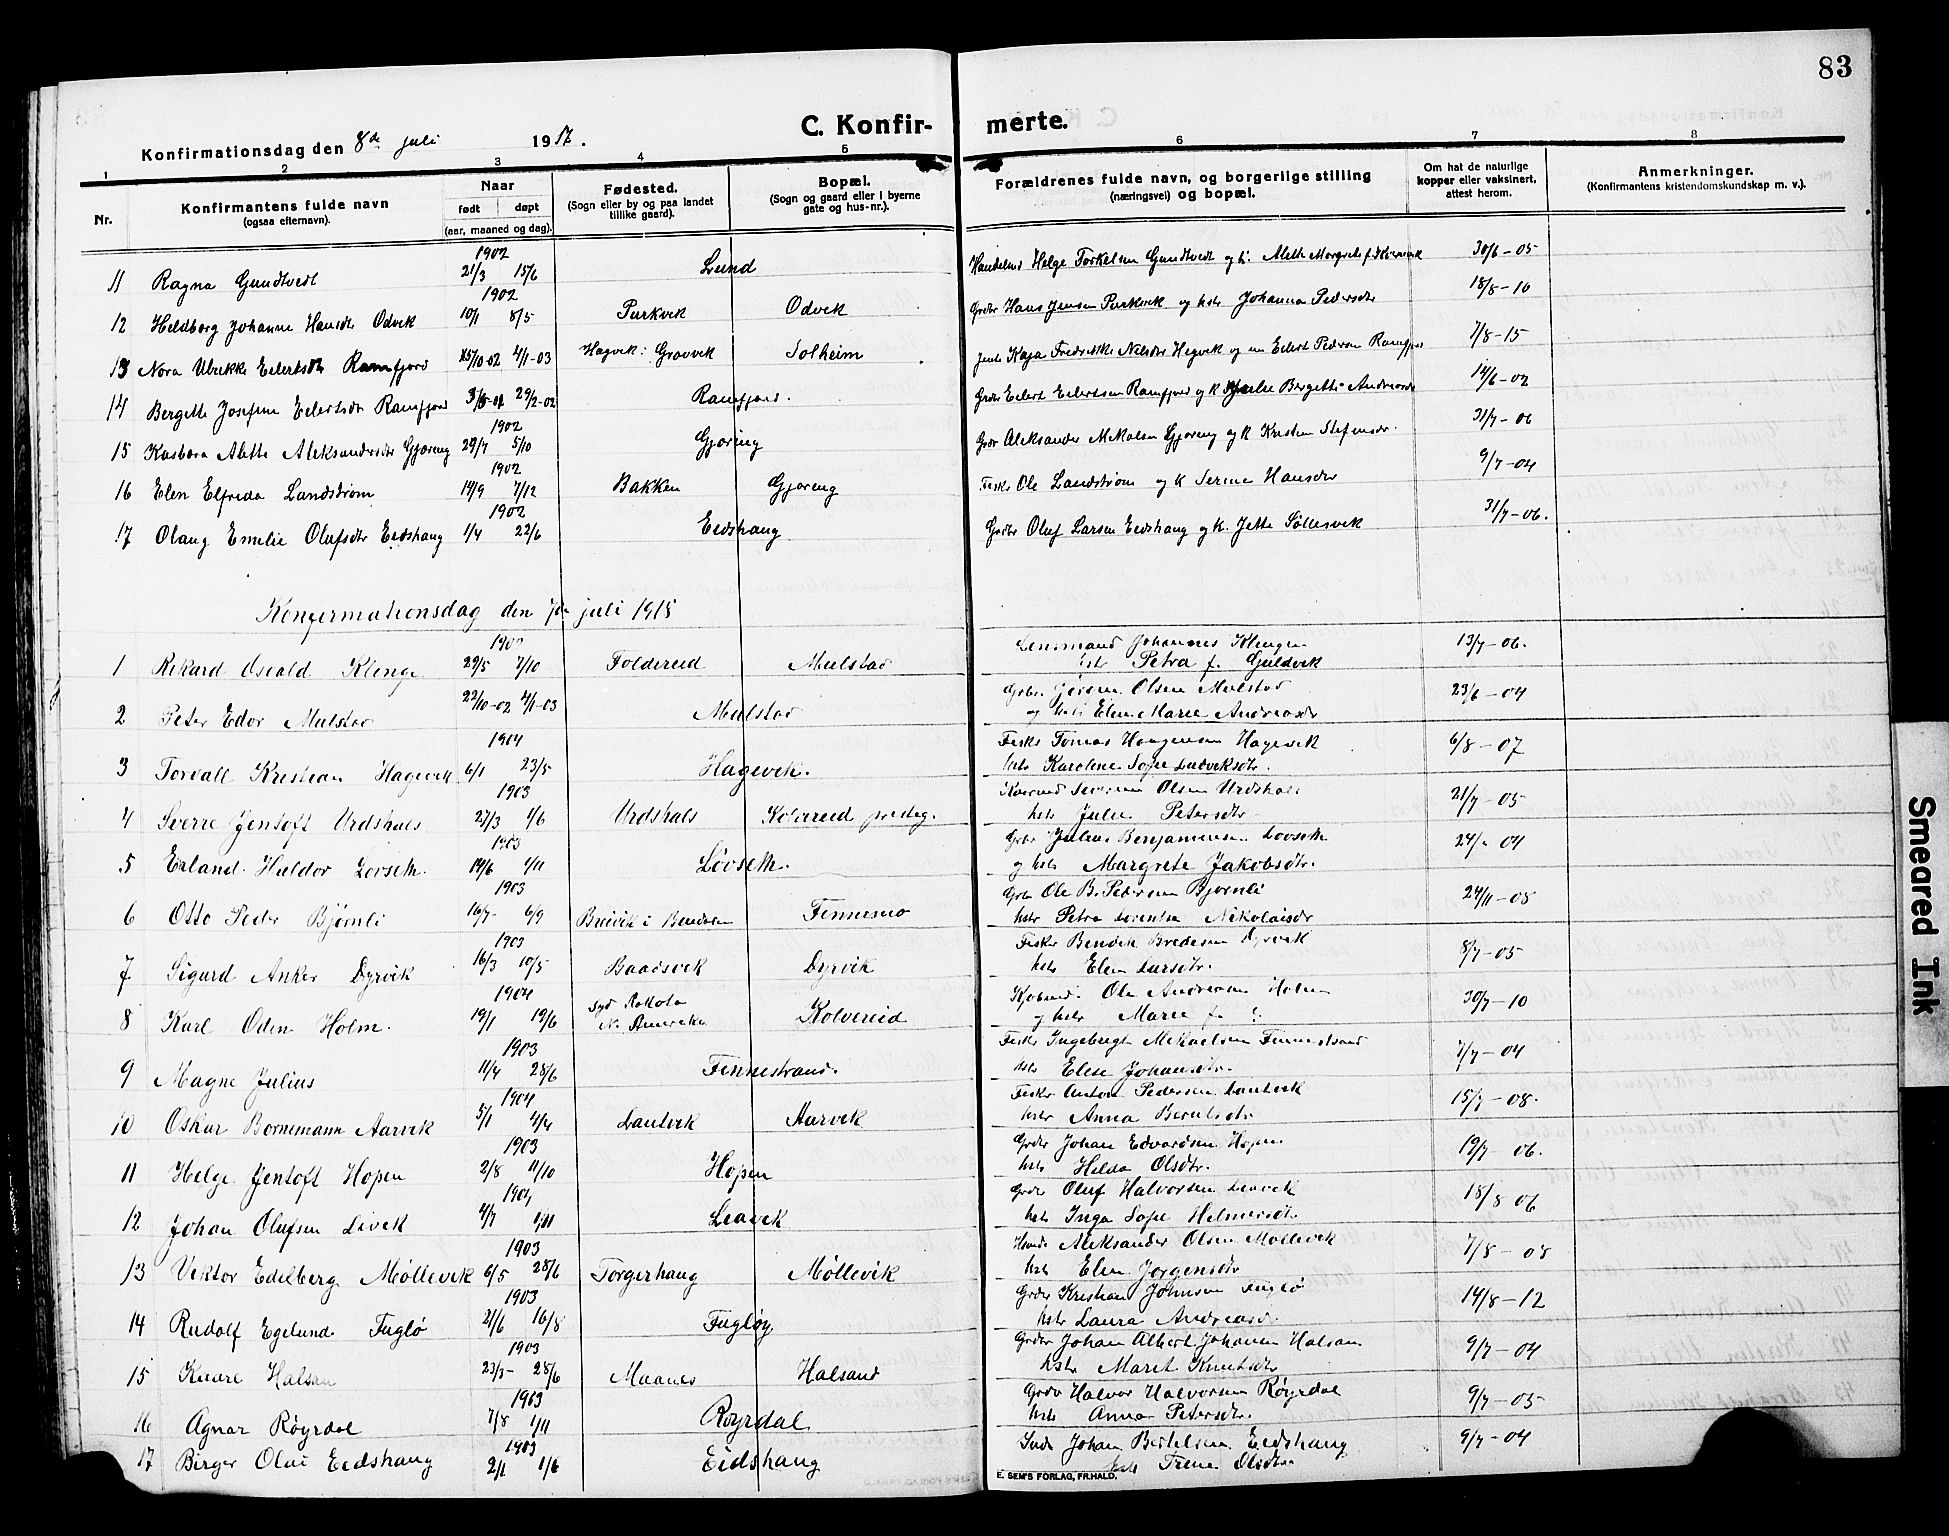 83
C. Konfir- merte.
Konfirmationsdag den 8de juli 1917.
1 2 3 4 5 6 7 8
Nr.
Konfirmantens fulde navn
(ogsaa efternavn).
Naar
født døpt
(aar, maaned og dag).
Fødested.
(Sogn eller by og paa landet
tillike gaard).
Bopæl.
(Sogn og gaard eller i byerne
gate og hus-nr.).
Forældrenes fulde navn, og borgerlige stilling
(næringsvei) og bopæl.
Om hat de naturlige
kopper eller vaksinert,
attest herom.
Anmerkninger.
(Konfirmantens kristendomskundskap m. v.).
1902
11 Ragna Gundtvedt 21/3 15/6 Lund Helge Torkelsen Gundtvedt og 30/6-05
1902
12 Hildborg Johanne Hansdtr Odvek 10/1 8/5 Purkvek Odvek Grdbr Hans Jensen Purkvek og hstr Johanna Pedersdtr 18/8-10
13 Nora Ulrikke Eilertsdtr Ramfjord 15/10-02 4/1-03 Hagvik: Grovvek Solheim Kaja Fredrikke Nilsdtr Hegvik og Eilert Pedersen Ramfjord 7/8-15
14 Bergette Josefine Eilertsdtr Ramfjord 29/2-02 Ramfjord. Grdbr Eilert Eilertsen Ramfjord og k Bergette Andreasdtr 14/6-02
1902
15 Kasbara Alette Aleksandersdtr Gjøreng 29/7 5/10 Gjøring Aleksander Mikalsen Gjøreng og k Kristine Stefensdtr. 31/7-06
1902
16 Elen Elfrida Landstrøm 14/9 7/12 Bakken Gjøreng Fisker Ole Landstrøm og k Serine Hansdtr 9/7-04
1902
17 Olaug Emelie Olufsdtr Eidshaug 1/4 22/6 Eidshaug Grdbr Oluf Larsen Eidshaug og k. Jette Søllesvik 31/7-06.
Konfirmationsdag den 7de juli 1918
1 Rikard Osvald Klenge 29/5 7/10 Foldereid Mulstad Lensmand Johannes Klenge 13/7-06.
hstr Petra f. Guldvik
2 Peter Edor Mulstad 22/10-02 4/1-03 Mulstad Olsen Mulstad 23/6-04
og hstr Elen Marie Andreasdtr
1904
3 Torvall Kristian Hagevik 6/1 23/5 Hagevik. Fisker Tomas Haagensen Hagevik 6/8-07
hstr Karoline Sofie Ludviksdtr.
1903
4 Sverre Jentoft Urdshals 27/3 1/6 Urdshals Kolvereid presteg. Severin Olsen Urdshals 21/7-05
hstr Julie Petersdtr
1903
5 Erland Haldor Lovseth. 14/6 1/11 Løvseth. Grdbr Julius Benjaminsen Lovseth
og hstr Margrete Jakobsdtr.
1903
6 Otto Peder Bjørnli 16/7 6/9 Finnesmo Grdbr Ole B. Pedersen Bjørnli 24/11-05
hstr Petra Lorentse Nikolaisdtr
1903
7 Sigurd Anker Dyrvik 16/3 10/5 Baadsvik Dyrvik Fisker Bendik Bredesen Dyrvik 8/7-05
hstr Elen Larsdtr.
1904
8 Karl Oden Holm. 19/1 19/6 Syd Dakota Kolvereid Ole Andreasen Holm 30/7-10
N. Amerika og hstr Marie f.
1903
9 Magne Julius 11/4 28/6 Finnestrand. Fisker Ingebregt Mikaelsen Finnestrand 7/7-04
hstr Elise Johansdtr.
1904
10 Oskar Bornemann Aarvik 5/1 4/4 Lautvik Aarvik Fisker Anton Pedersen Lautvik 15/7-08.
hstr Anna Berntsdtr
1903
11 Helge Jentoft Hopen 2/8 11/10 Hopen Grdbr Johan Edvardsen Hopen 19/7 06.
hstr Hilda Olsdtr.
12 Johan Olufsen Livik 4/7 Leavik Grdbr Oluf Halvorsen Leavik 18/8 06
hstr Inga Sofie Helmersdtr.
1903
13 Viktor Edelberg Møllevik 6/5 28/6 Torgerhaug Møllevik Aleksander Olsen Møllevik 7/8-08
hstr Elen Jorgensdtr
1903
14 Rudolf Egelund Fuglø 21/6 16/8 Fugløy Grdbr Kristian Johnsen Fuglø 14/8-12
hstr Laura Andreasd.
1903
15 Kaare Halsan 23/3- 28/6 Maanes Halsand Grdbr Johan Albert Johansen Halsan 9/7-04
hstr Maret Knutsdtr
1903
16 Agnar Røyrdal 7/8 1/11 Røyrdal Grdbr Halvor Halvorsen Røyrdal 9/7-05
hstr Anna Petersdtr.
1903
17 Birger Olai Eidshaug 2/1 1/6 Eidshaug Johan Bertelsen Eidshaug 9/7-04
hstr Trine Olsdtr
E. SEM'S FORLAG, FR.HALD.
Smeared Ink